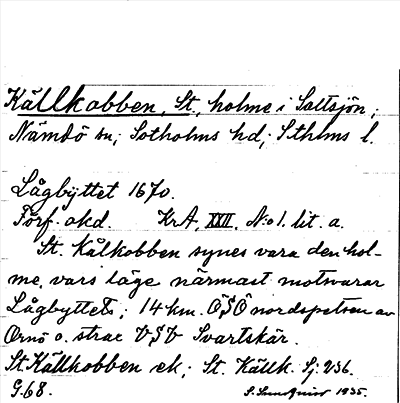 Källkobben, St., holme i Saltsjön;
Nämdö sn; Sotholms hd; Sthlms l.
Lågbyttet 1670.
Förf. okd. KrA, XXII, No 1. lit. a.
St. Kålkobben synes vara den hol-
me, vars läge närmast motsvarar
Lågbyttets; 14 km. ÖSÖ nordspetsen av
Ornö o. strax VSV Svartskär.
St. Källkobben ek; St. Källk. Sj. 236.
G.68. S. Sundqvist 1935.